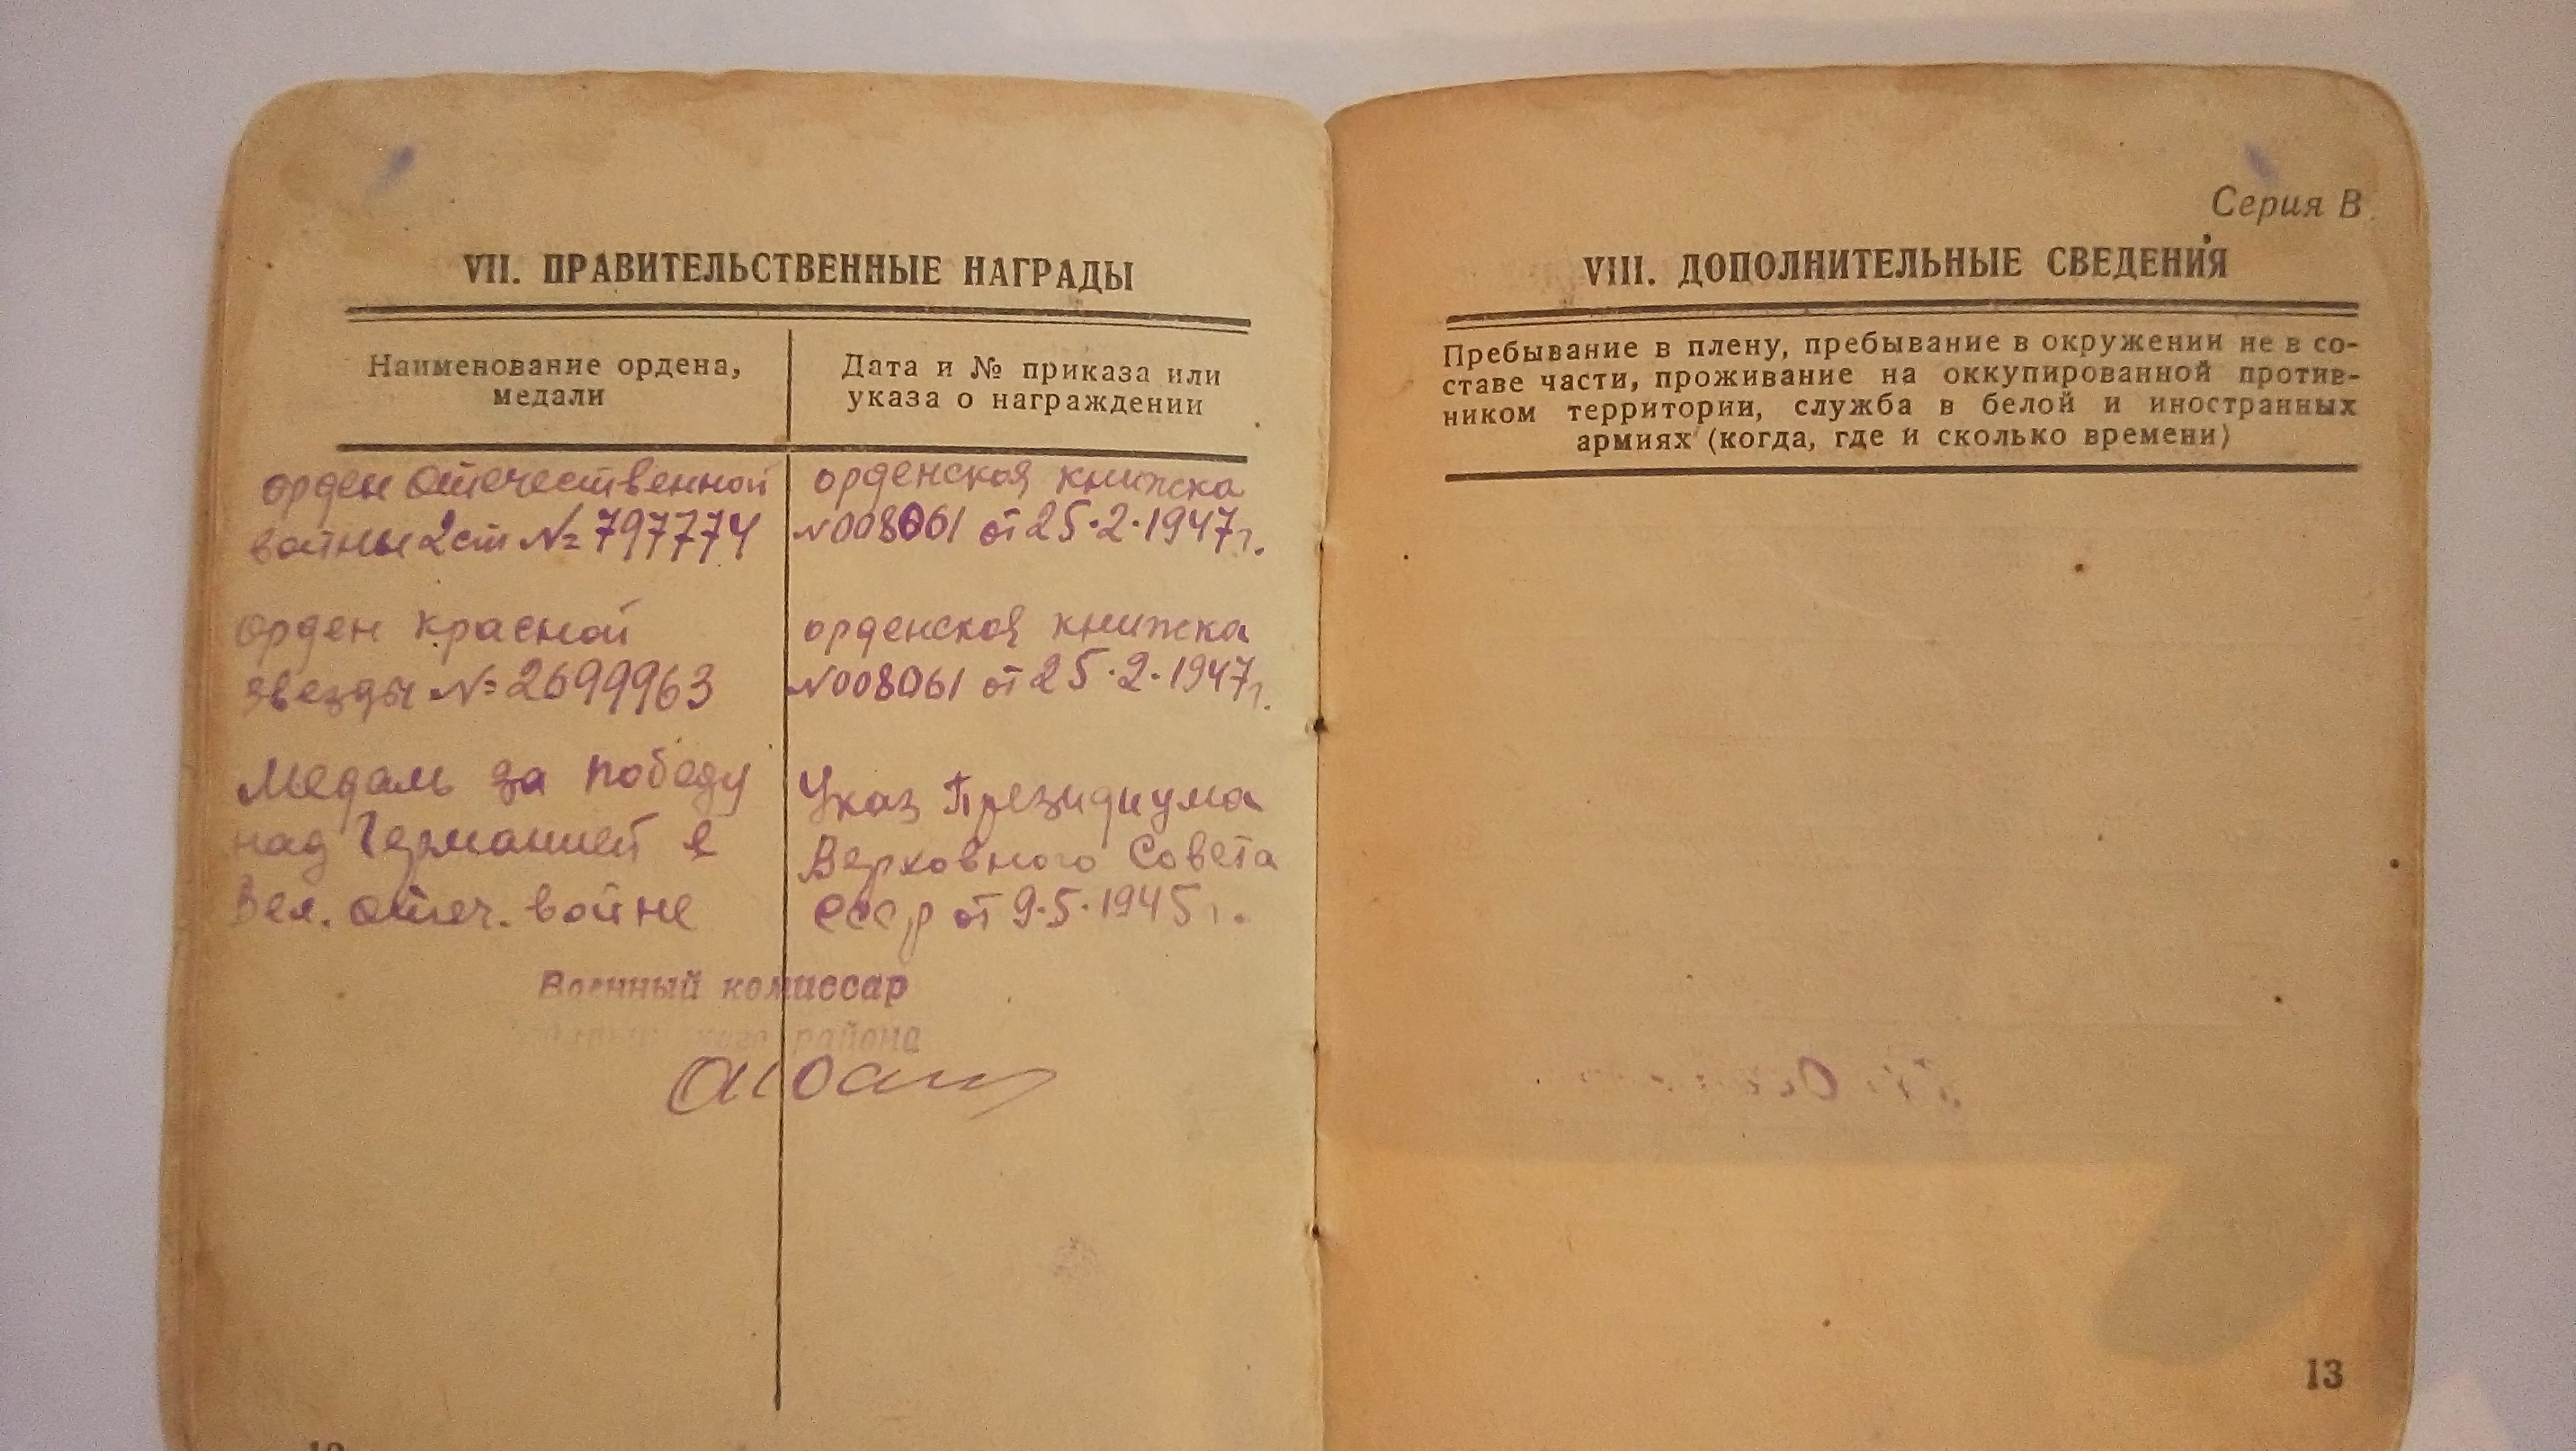 VII. ПРАВИТЕЛЬСТВЕННЫЕ НАГРАДЫ
Наименование ордена,
медали
Дата и № приказа или
указа о награждении
орден Отечественной
войны 2 ст № 797774
орденская книжка
№ 008061 от 25.2.1947 г.
орден красной
звезды № 2699963
орденская книжка
№ 008061 от 25.2.1947 г.
Медаль за победу
над Германией в
Вел. отеч. войне
Указ Президиума
Верховного Совета
СССР от 9.5.1945 г.
Военный комиссар
района
Серия В.
VIII. ДОПОЛНИТЕЛЬНЫЕ СВЕДЕНИЯ
Пребывание в плену, пребывание в окружении не в со-
ставе части, проживание на оккупированной против-
ником территории, служба в белой и иностранных
армиях (когда, где и сколько времени)
13